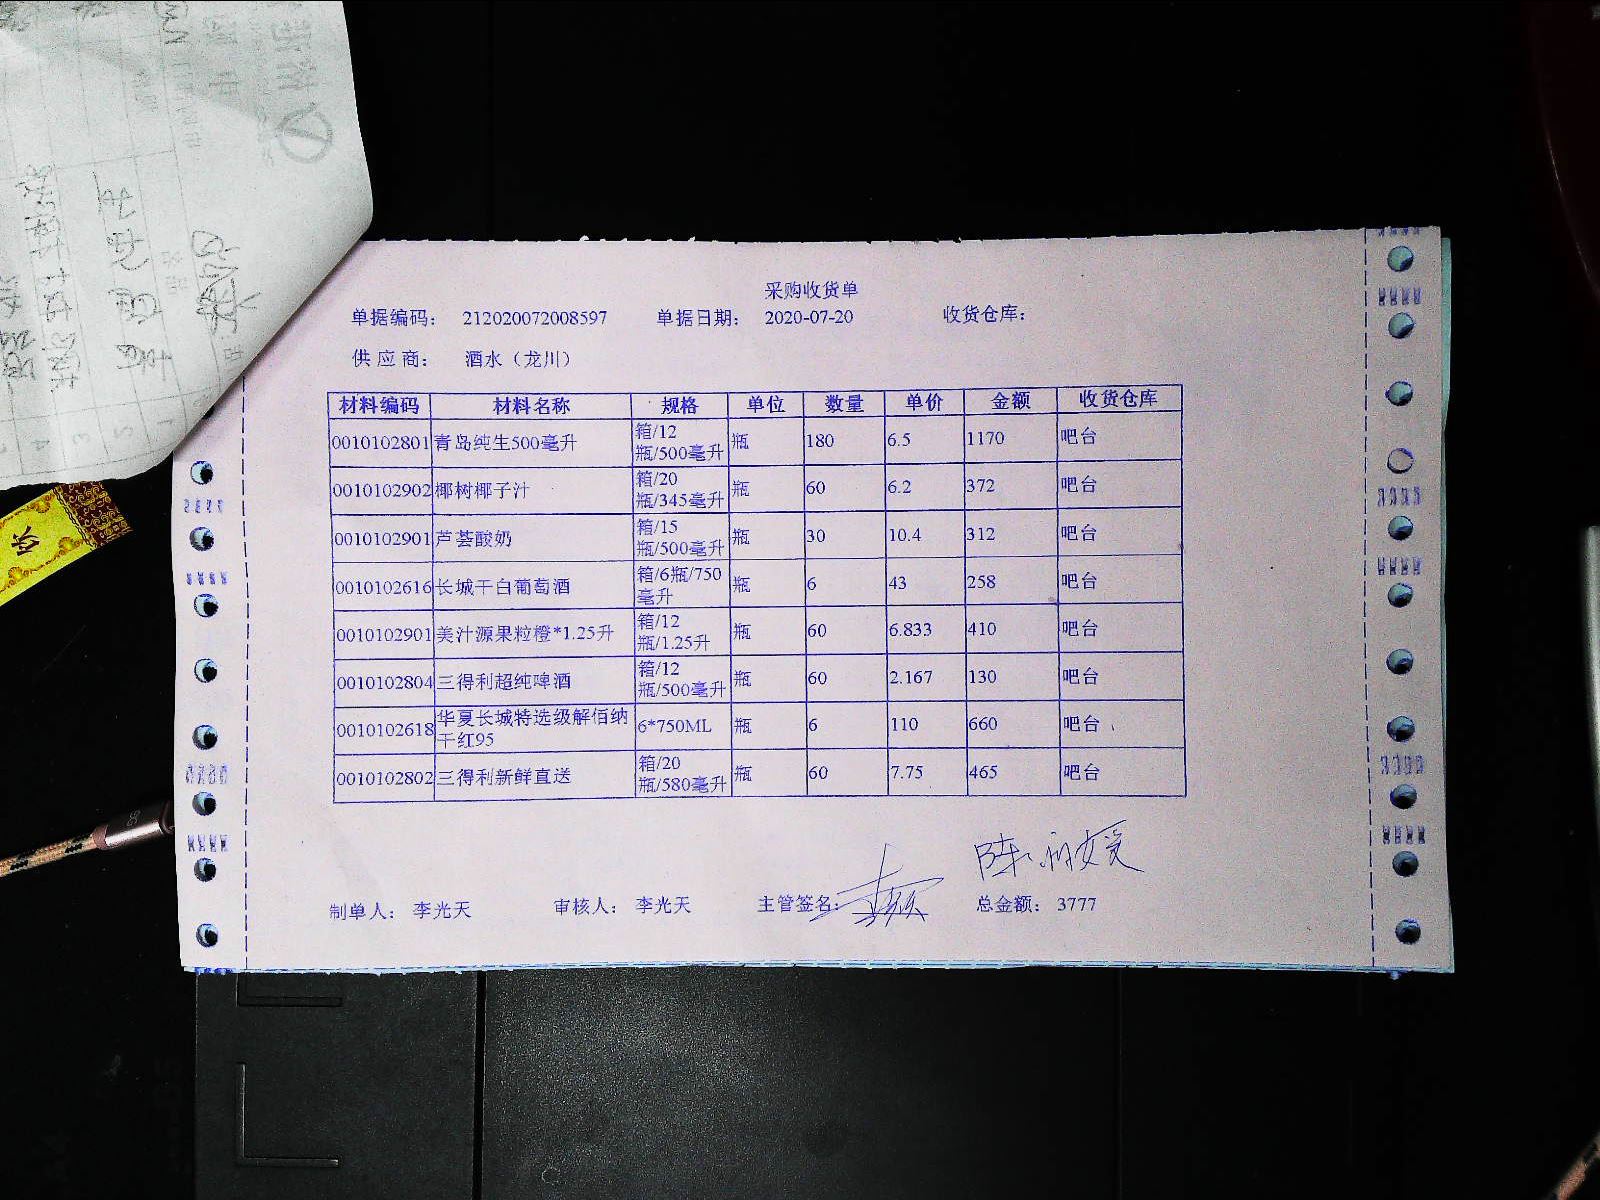 采购收货单
单据编码： 212020072008597 单据日期： 2020-07-20 收货仓库：
供应商： 酒水（龙川）
材料编码 材料名称 规格 单位 数量 单价 金额 收货仓库
0010102801 青岛纯生500毫升 箱/12瓶/500毫升 瓶 180 6.5 1170 吧台
0010102902 椰树椰子汁 箱/20瓶/345毫升 瓶 60 6.2 372 吧台
0010102901 芦荟酸奶 箱/15瓶/500毫升 瓶 30 10.4 312 吧台
0010102616 长城干白葡萄酒 箱/6瓶/750毫升 瓶 6 43 258 吧台
0010102901 美汁源果粒橙*1.25升 箱/12瓶/1.25升 瓶 60 6.833 410 吧台
0010102804 三得利超纯啤酒 箱/12瓶/500毫升 瓶 60 2.167 130 吧台
0010102618 华夏长城特选级解佰纳干红95 6*750ML 瓶 6 110 660 吧台
0010102802 三得利新鲜直送 箱/20瓶/580毫升 瓶 60 7.75 465 吧台
制单人： 李光天 审核人： 李光天 主管签名： 总金额： 3777